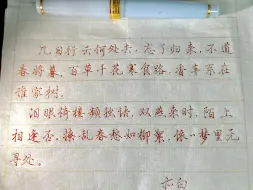 几日行云何处去,忘了归来,不道
春将暮,百草千花寒食路,香车系在
谁家树.
泪眼倚楼频独语,双燕来时,陌上
相逢否,撩乱春愁如柳絮,依〃梦里无
寻处.